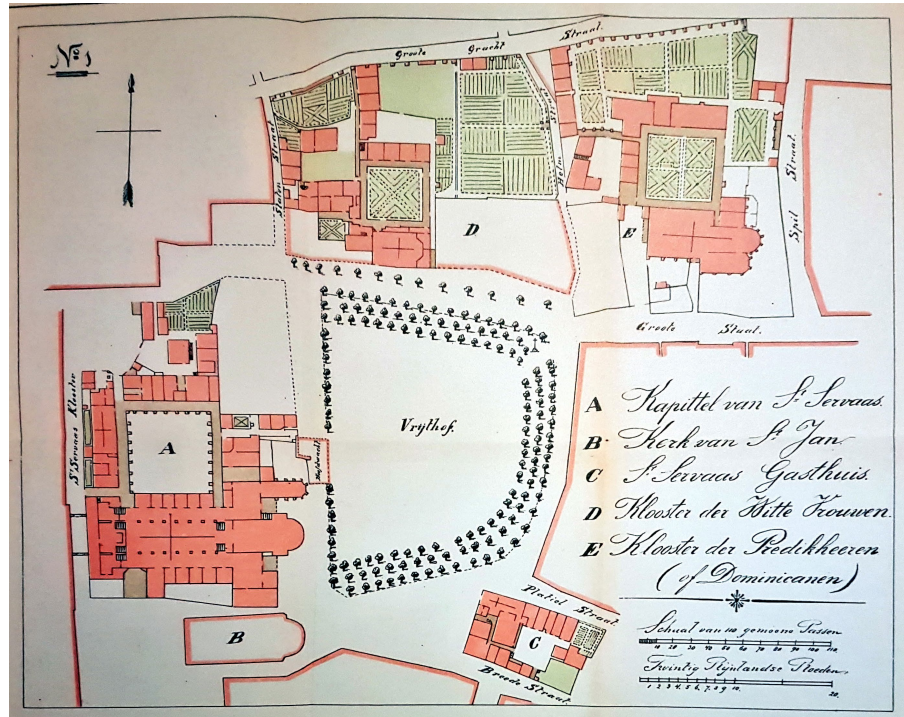 No 1
Groote Gracht
Straat.
Staten Straat
Helm Straat
Spil Straat.
D
E
Groote Staat.
St Servaas Klooster
A
Vrijthof.
Hoofdwacht
B
Platiel Straat.
C
Breede Straat.
A Kapittel van St Servaas.
B. Kerk van St Jan.
C St Servaas Gasthuis.
D Klooster der Witte Vrouwen.
E Klooster der Predikheeren
(of Dominicanen)
Schaal van 110 gemeene Passen
10 20 30 40 50 60 70 80 90 100 110.
Twintig Rijnlandse Roeden.
1 2 3 4 5 6 7 8 9 10. 20.